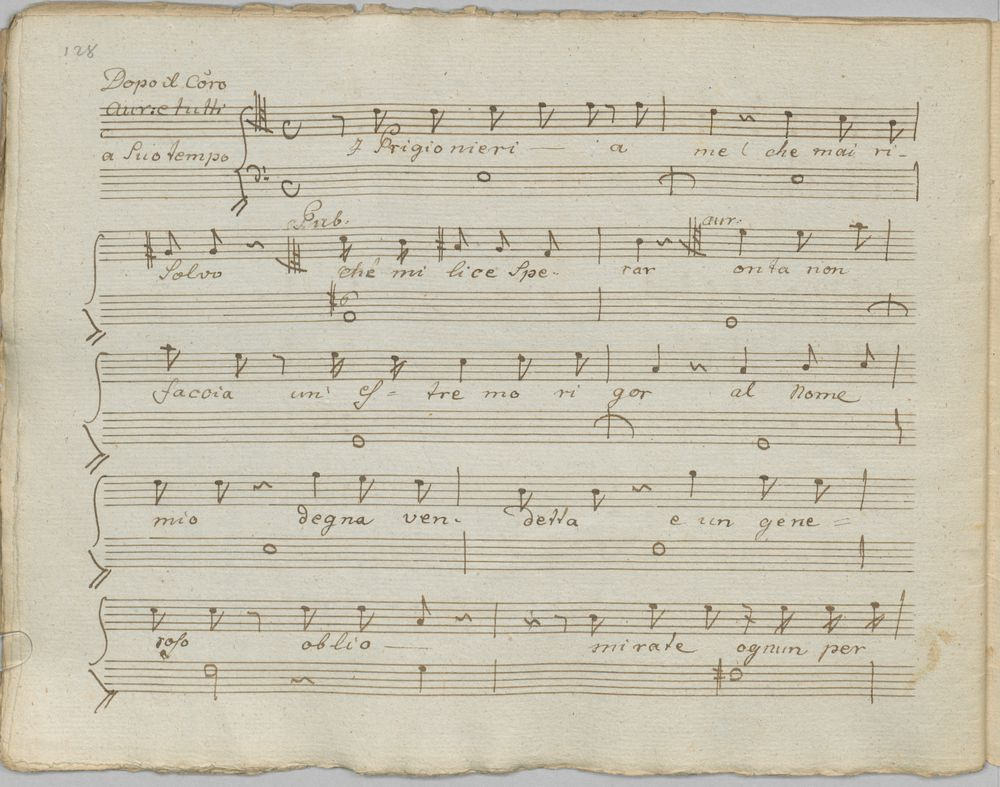 128
Dopo il Coro
Aur: e tutti
a suo tempo
I Prigionieri — a me! che mai ri-
Pub:
aur:
solvo che mi lice spe- rar onta non
6
faccia un' es- tre mo ri gor al Nome
mio degna ven- detta e un gene =
roso oblio — mirate ognun per